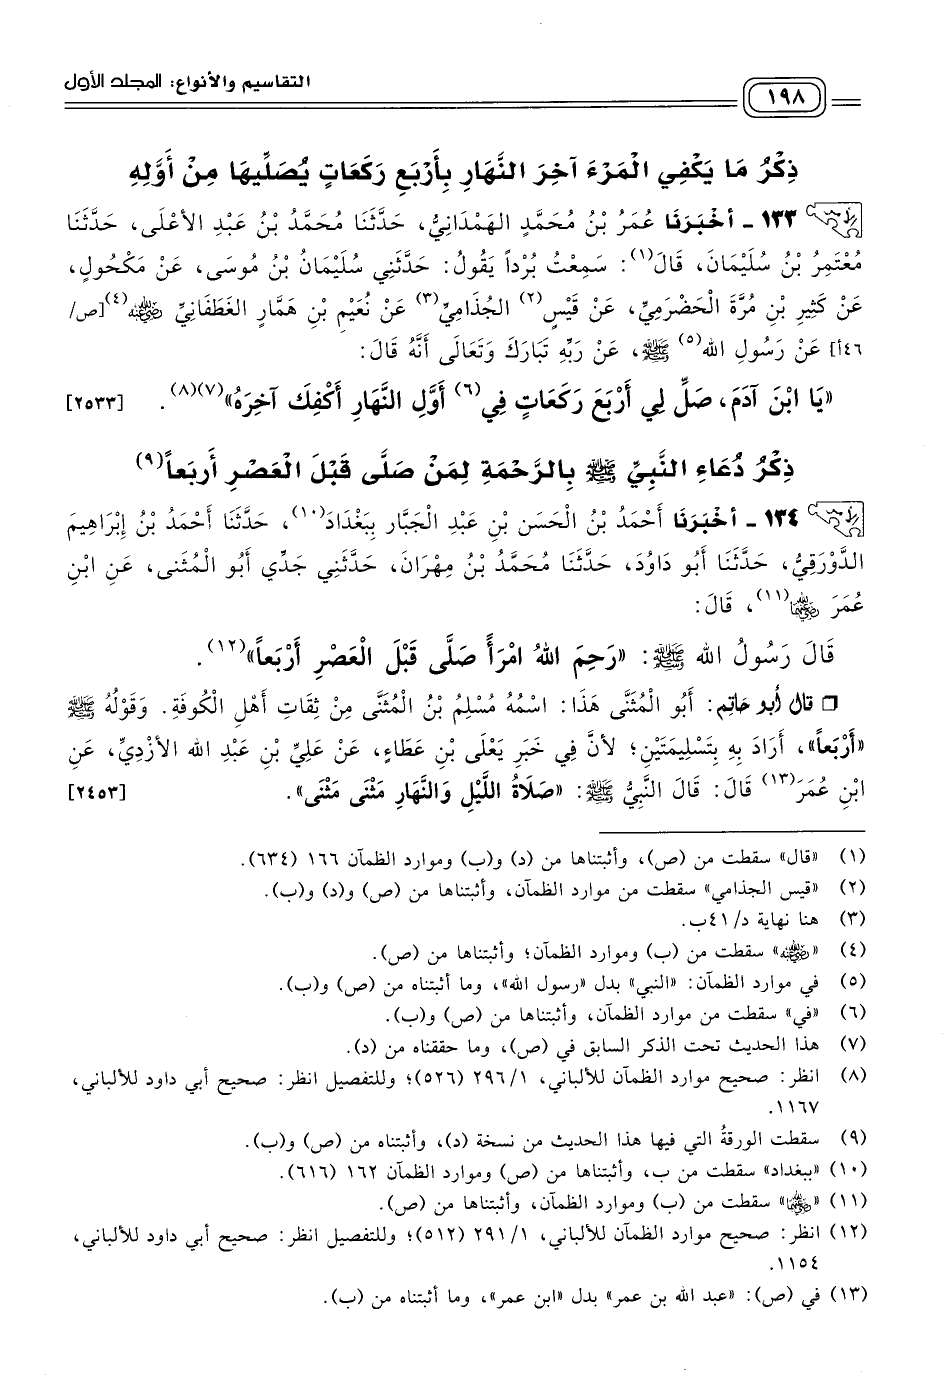 التقاسيم والأنواع: المجلد الأول
١٩٨
ذِكْرُ مَا يَكْفِي الْمَرْءَ آخِرَ النَّهَارِ بِأَرْبَعِ رَكَعَاتٍ يُصَلِّيهَا مِنْ أَوَّلِهِ
١٣٣ - أَخْبَرَنَا عُمَرُ بْنُ مُحَمَّدٍ الهَمْدَانِيُّ، حَدَّثَنَا مُحَمَّدُ بْنُ عَبْدِ الأعْلَى، حَدَّثَنَا
مُعْتَمِرُ بْنُ سُلَيْمَانَ، قَالَ(١): سَمِعْتُ بُرْداً يَقُولُ: حَدَّثَنِي سُلَيْمَانُ بْنُ مُوسَى، عَنْ مَكْحُولٍ،
عَنْ كَثِيرِ بْنِ مُرَّةَ الْحَضْرَمِيِّ، عَنْ قَيْسٍ(٢) الْجُذَامِيِّ(٣) عَنْ نُعَيْمِ بْنِ هَمَّارٍ الغَطَفَانِيِّ ﵁(٤)[ص/
٤٦أ] عَنْ رَسُولِ الله(٥) ﷺ، عَنْ رَبِّهِ تَبَارَكَ وَتَعَالَى أَنَّهُ قَالَ:
«يَا ابْنَ آدَمَ، صَلِّ لِي أَرْبَعَ رَكَعَاتٍ فِي(٦) أَوَّلِ النَّهَارِ أَكْفِكَ آخِرَهُ»(٧)(٨). [٢٥٣٣]
ذِكْرُ دُعَاءِ النَّبِيِّ ﷺ بِالرَّحْمَةِ لِمَنْ صَلَّى قَبْلَ الْعَصْرِ أَرْبَعاً(٩)
١٣٤ - أَخْبَرَنَا أَحْمَدُ بْنُ الْحَسَنِ بْنِ عَبْدِ الْجَبَّارِ بِبَغْدَادَ(١٠)، حَدَّثَنَا أَحْمَدُ بْنُ إِبْرَاهِيمَ
الدَّوْرَقِيُّ، حَدَّثَنَا أَبُو دَاوُدَ، حَدَّثَنَا مُحَمَّدُ بْنُ مِهْرَانَ، حَدَّثَنِي جَدِّي أَبُو الْمُثَنى، عَنِ ابْنِ
عُمَرَ ﵄(١١)، قَالَ:
قَالَ رَسُولُ الله ﷺ: «رَحِمَ اللهُ امْرَأً صَلَّى قَبْلَ الْعَصْرِ أَرْبَعاً»(١٢).
❒ قال أبو حاتِم: أَبُو الْمُثَنَّى هَذَا: اسْمُهُ مُسْلِمُ بْنُ الْمُثَنَّى مِنْ ثِقَاتِ أَهْلِ الْكُوفَةِ. وَقَوْلُهُ ﷺ
«أَرْبَعاً»، أَرَادَ بِهِ بِتَسْلِيمَتَيْنِ؛ لأنَّ فِي خَبَرِ يَعْلَى بْنِ عَطَاءٍ، عَنْ عَلِيِّ بْنِ عَبْدِ الله الأزْدِيِّ، عَنِ
ابْنِ عُمَرَ(١٣) قَالَ: قَالَ النَّبِيُّ ﷺ: «صَلَاةُ اللَّيْلِ وَالنَّهَارِ مَثْنَى مَثْنَى». [٢٤٥٣]
(١) «قال» سقطت من (ص)، وأثبتناها من (د) و(ب) وموارد الظمآن ١٦٦ (٦٣٤).
(٢) «قيس الجذامي» سقطت من موارد الظمآن، وأثبتناها من (ص) و(د) و(ب).
(٣) هنا نهاية د/٤١ب.
(٤) «﵁» سقطت من (ب) وموارد الظمآن؛ وأثبتناها من (ص).
(٥) في موارد الظمآن: «النبي» بدل «رسول الله»، وما أثبتناه من (ص) و(ب).
(٦) «في» سقطت من موارد الظمآن، وأثبتناها من (ص) و(ب).
(٧) هذا الحديث تحت الذكر السابق في (ص)، وما حققناه من (د).
(٨) انظر: صحيح موارد الظمآن للألباني، ٢٩٦/١ (٥٢٦)؛ وللتفصيل انظر: صحيح أبي داود للألباني،
١١٦٧.
(٩) سقطت الورقةُ التي فيها هذا الحديث من نسخة (د)، وأثبتناه من (ص) و(ب).
(١٠) «ببغداد» سقطت من ب، وأثبتناها من (ص) وموارد الظمآن ١٦٢ (٦١٦).
(١١) «﵄» سقطت من (ب) وموارد الظمآن، وأثبتناها من (ص).
(١٢) انظر: صحيح موارد الظمآن للألباني، ٢٩١/١ (٥١٢)؛ وللتفصيل انظر: صحيح أبي داود للألباني،
١١٥٤.
(١٣) في (ص): «عبد الله بن عمر» بدل «ابن عمر»، وما أثبتناه من (ب).